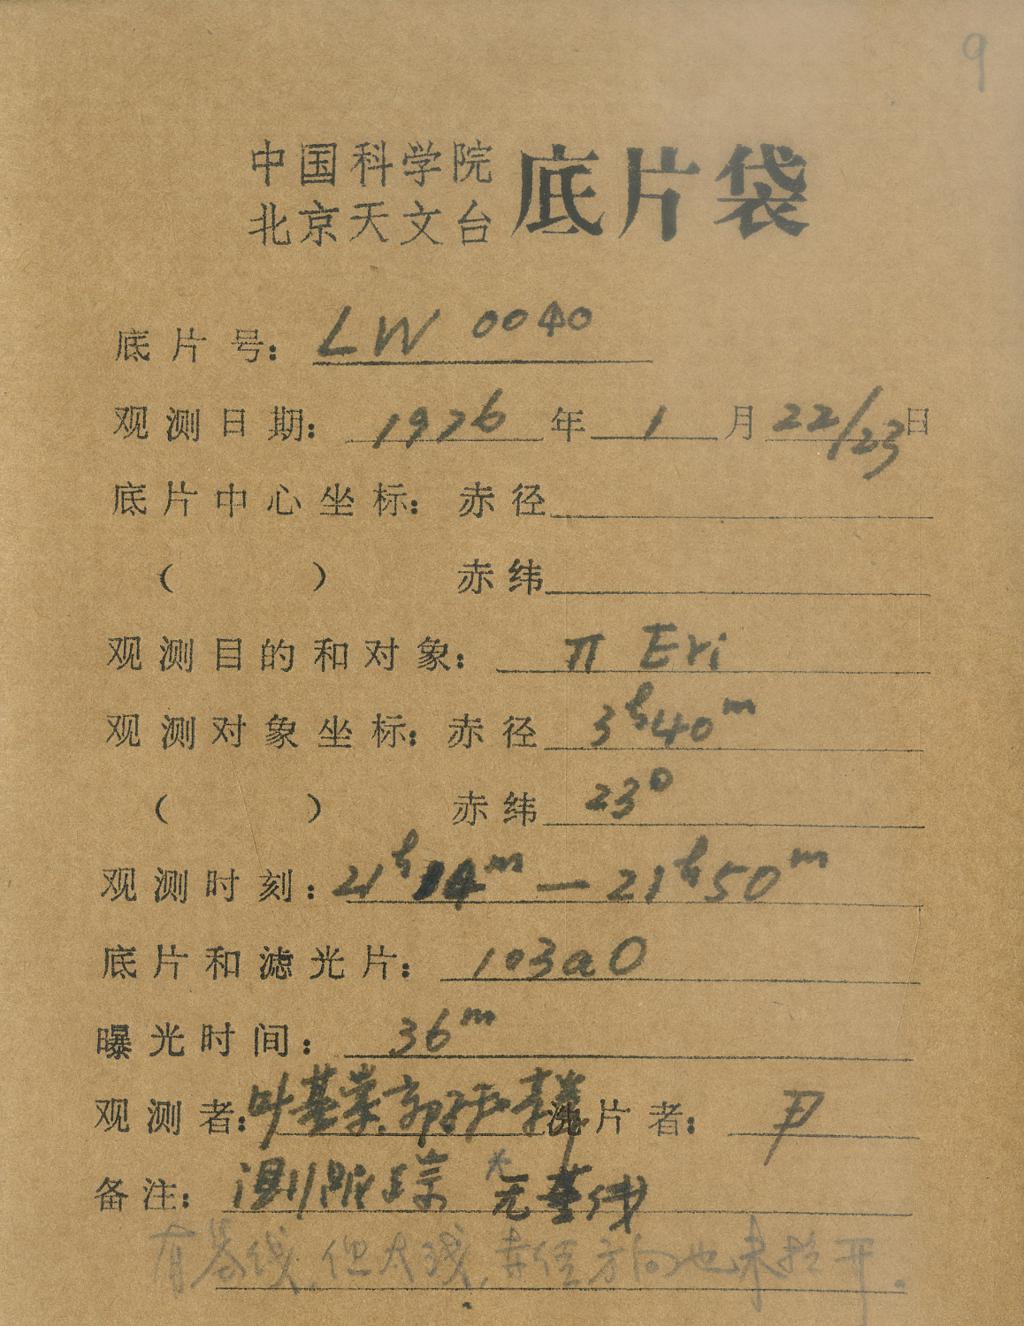 9
中国科学院
北京天文台 底片袋
底片号: LW 0040
观测日期: 1976年1月22/23日
底片中心坐标: 赤径
( ) 赤纬
观测目的和对象: π Eri
观测对象坐标: 赤径 3h40m
( ) 赤纬 23°
观测时刻: 21h14m — 21h50m
底片和滤光片: 103aO
曝光时间: 36m
观测者: 叶基棠 洗片者: 尹
备注: 测跟踪 无基线
有基线,但太线,赤径方向也未拉开。